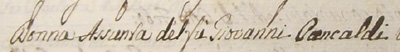 Donna Assunta del fu Giovanni Pancaldi